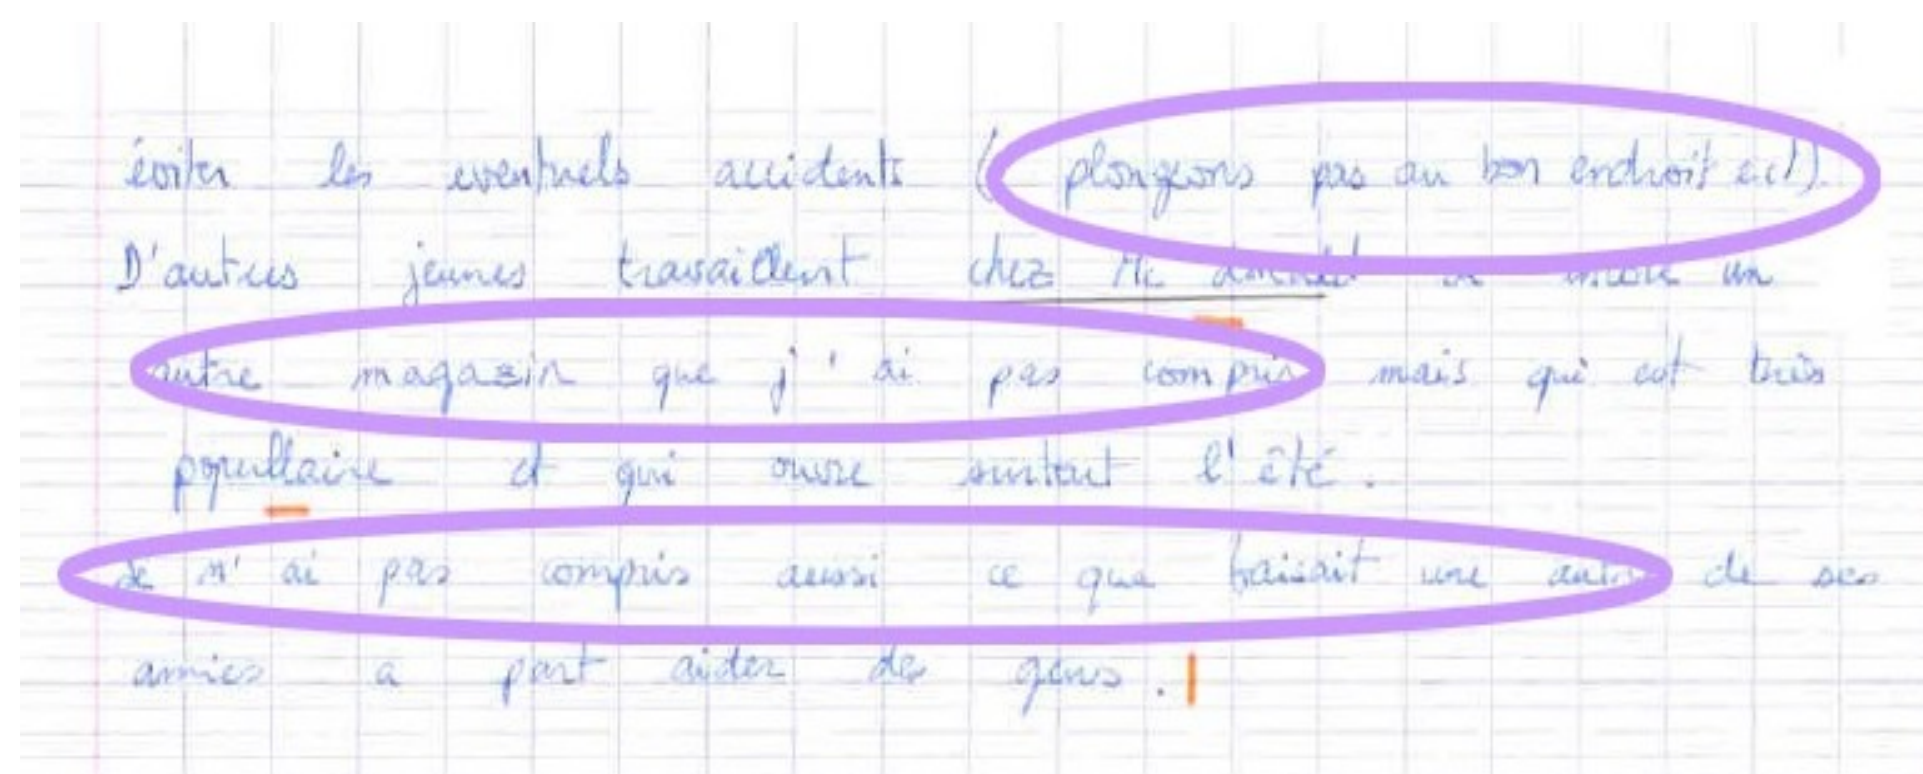 éviter les eventuels accidents ( plongeons pas au bon endroit ect).
D'autres jeunes travaillent chez Mc donald un
autre magasin que j'ai pas compris mais qui est très
popullaire et qui ouvre surtout l'été.
Je n'ai pas compris aussi ce que faisait une autre de ses
amies a part aider des gens.